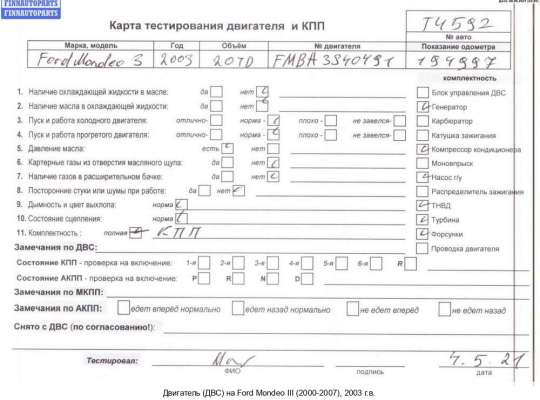 FINNAUTOPARTS
FINNAUTOPARTS
Карта тестирования двигателя и КПП
T4592
№ авто
Марка, модель Год Объём № двигателя Показание одометра
Ford Mondeo 3 2003 20TD FMBA 3S40491 194997
комплектность
1. Наличие охлаждающей жидкости в масле: да нет
Блок управления ДВС
2. Наличие масла в охлаждающей жидкости: да нет
Генератор
3. Пуск и работа холодного двигателя: отлично- норма - плохо - не завелся-
Карбюратор
4. Пуск и работа прогретого двигателя: отлично- норма - плохо - не завелся-
Катушка зажигания
5. Давление масла: есть нет
Компрессор кондиционера
6. Картерные газы из отверстия масляного щупа: да нет
Моновпрыск
7. Наличие газов в расширительном бачке: да нет
Насос г/у
8. Посторонние стуки или шумы при работе: да нет
Распределитель зажигания
9. Дымность и цвет выхлопа: норма
ТНВД
10. Состояние сцепления: норма
Турбина
11. Комплектность : полная КПП
Форсунки
Замечания по ДВС:
Проводка двигателя
Состояние КПП - проверка на включение: 1-я 2-я 3-я 4-я 5-я 6-я R
Состояние АКПП - проверка на включение: P R N D
Замечания по МКПП:
Замечания по АКПП: едет вперёд нормально едет назад нормально не едет вперёд не едет назад
Снято с ДВС (по согласованию!):
Тестировал: 4.5.21
ФИО подпись дата
Двигатель (ДВС) на Ford Mondeo III (2000-2007), 2003 г.в.